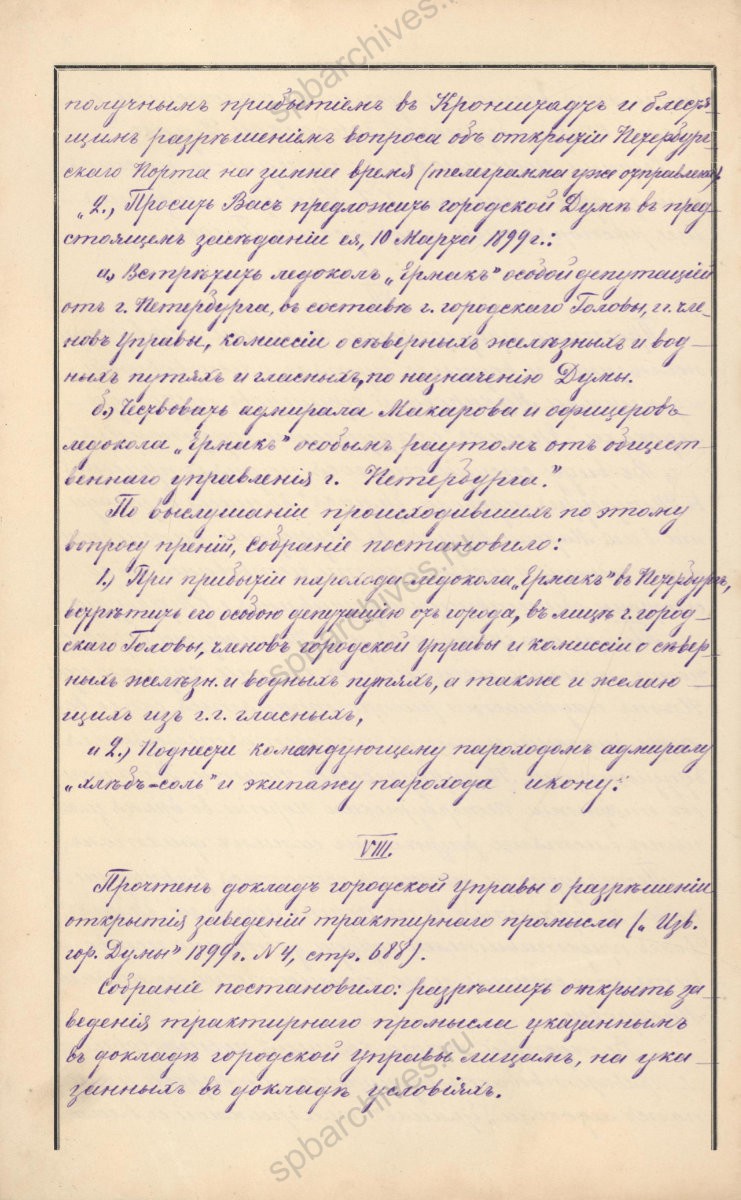 получнымъ прибытіемъ въ Кронштадтъ и блестя-
щимъ разрѣшеніемъ вопроса объ открытіи Петербург-
скаго Порта на зимнее время (телеграмма уже отправлена).
„2., Просить Васъ предложить городской Думѣ въ пред-
стоящемъ засѣданіи ея, 10 Марта 1899 г.:
а., Встрѣтить ледоколъ „Ермакъ" особой депутаціей
отъ г. Петербурга, въ составѣ г. городскаго Головы, г.г. чле-
новъ Управы, комиссіи о сѣверныхъ желѣзныхъ и вод-
ныхъ путяхъ и гласныхъ, по назначенію Думы.
б.) Чествовать адмирала Макарова и офицеровъ
ледокола „Ермакъ" особымъ раутомъ отъ общест-
веннаго управленія г. Петербурга."
По выслушаніи происходившихъ по этому
вопросу преній, Собраніе постановило:
1.) При прибытіи парохода-ледокола „Ермакъ" въ Петербургъ,
встрѣтить его особою депутаціею отъ города, въ лицѣ г. город-
скаго Головы, членовъ городской управы и комиссіи о сѣвер-
ныхъ желѣзн. и водныхъ путяхъ, а также и желаю-
щихъ изъ г.г. гласныхъ,
и 2.) Поднести командующему пароходомъ адмиралу
„хлѣбъ-соль" и экипажу парохода икону.
VIII.
Прочтенъ докладъ городской управы о разрѣшеніи
открытія заведеній трактирнаго промысла („Изв.
гор. Думы" 1899 г. N 4, стр. 688).
Собраніе постановило: разрѣшить открыть за-
веденія трактирнаго промысла указаннымъ
въ докладѣ городской управы лицамъ, на ука-
занныхъ въ докладѣ условіяхъ.
spbarchives.ru
spbarchives.ru
spbarchives.ru